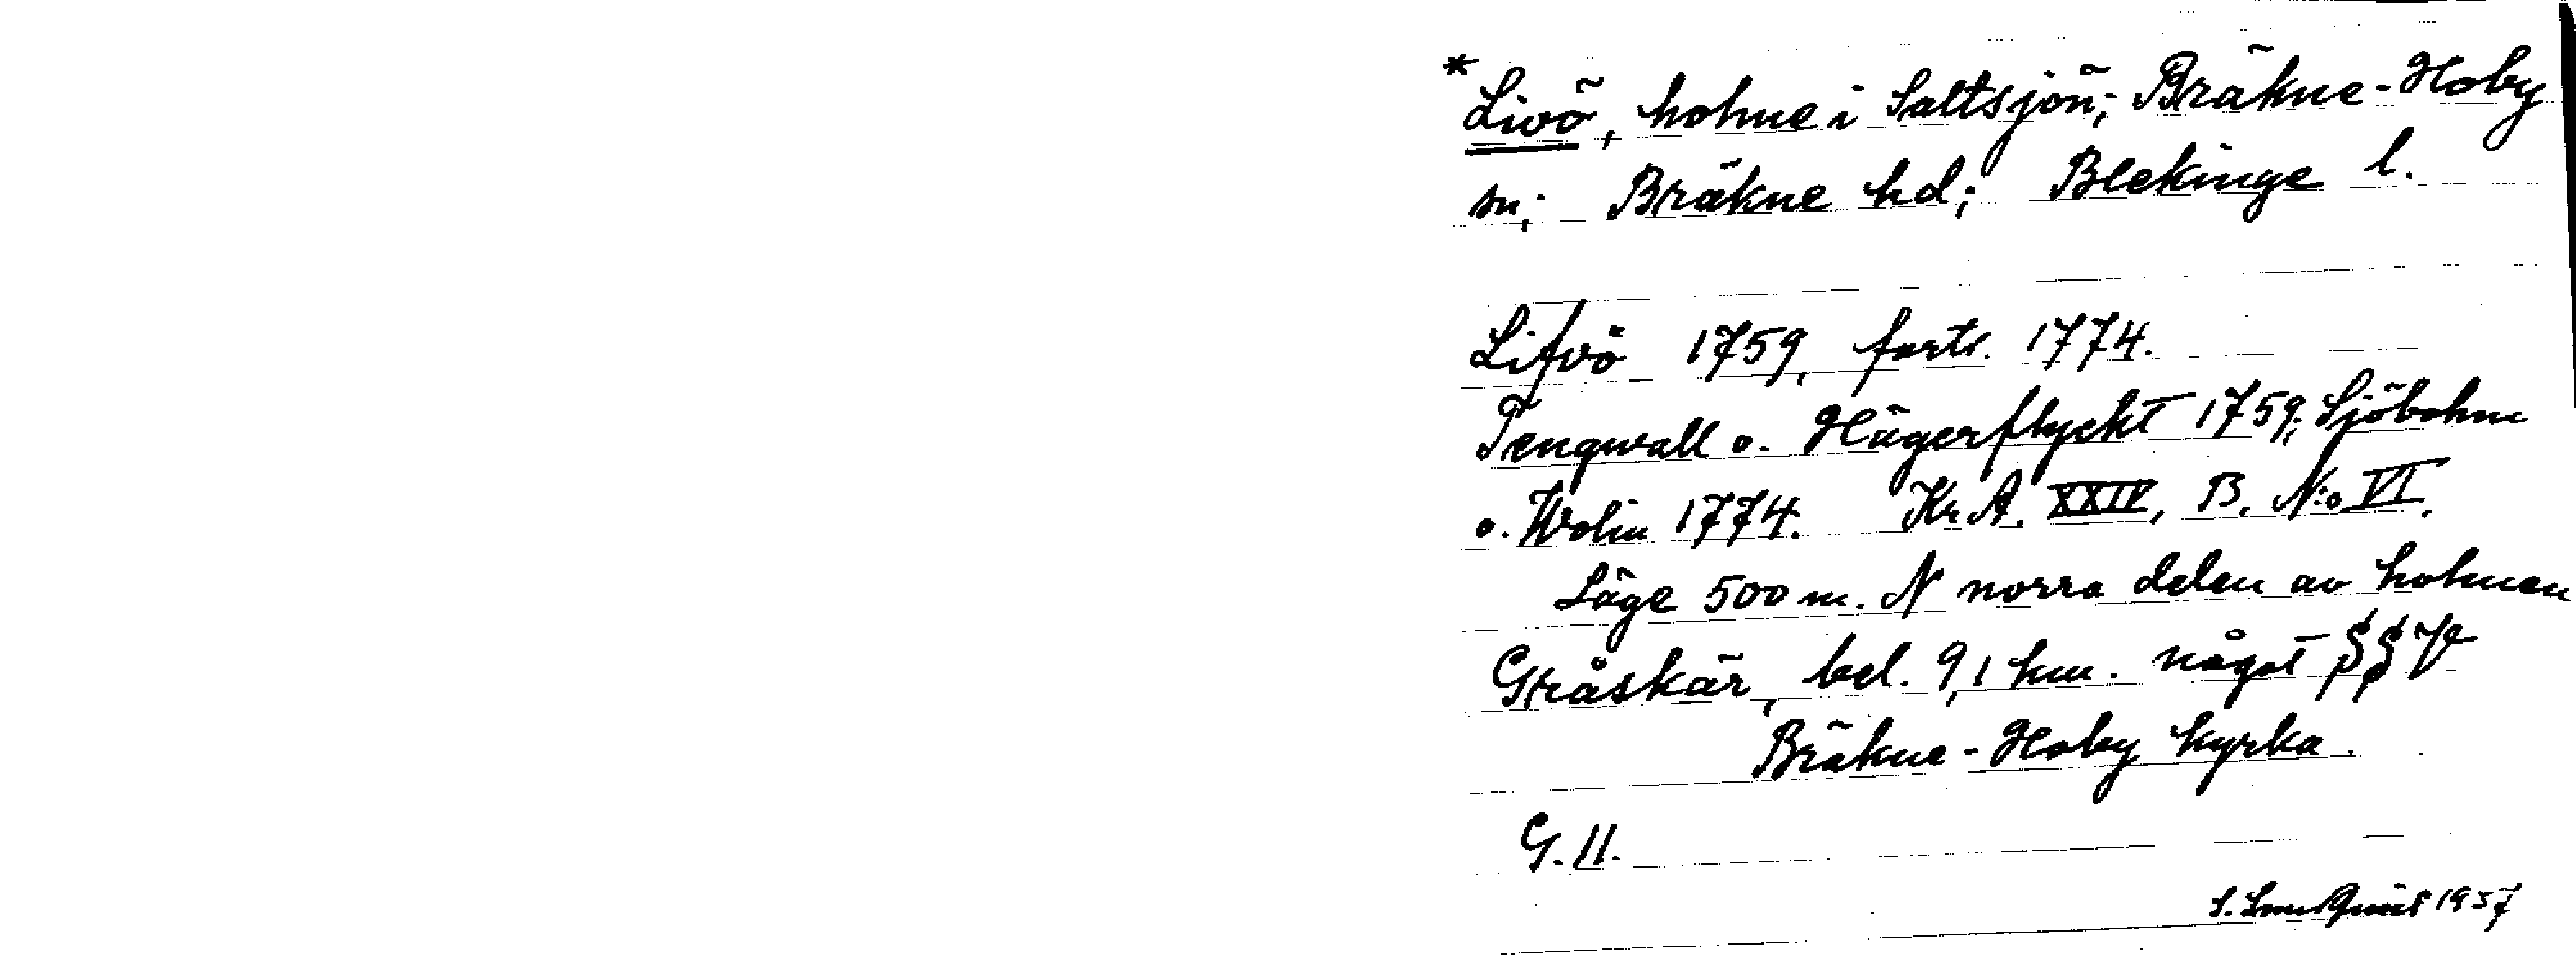 *Livö, holme i Saltsjön; Bräkne-Hoby
sn; Bräkne hd; Blekinge l.
Lifvö 1759, forts. 1774.
Tengwall o. Hägerflyckt 1759; Sjöbohm
o. Wolin 1774. Kr.A. XXIV, B. N:o VI.
Läge 500 m. N norra delen av holmen
Gråskär, bel. 9,1 km. något
Bräkne-Hoby kyrka.
G. 11.
S. 1957